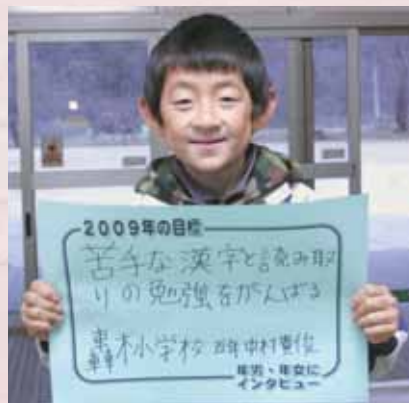 2009年の目標
苦手な漢字と読み取
りの勉強をがんばる
轟木小学校 四年 中村貴俊
年男・年女に
インタビュー